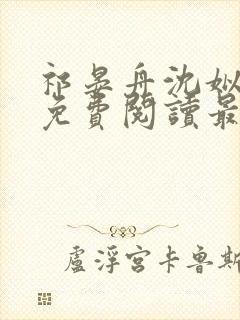 祁晏舟沈姒
免費閱讀最
盧浮宮卡魯斯